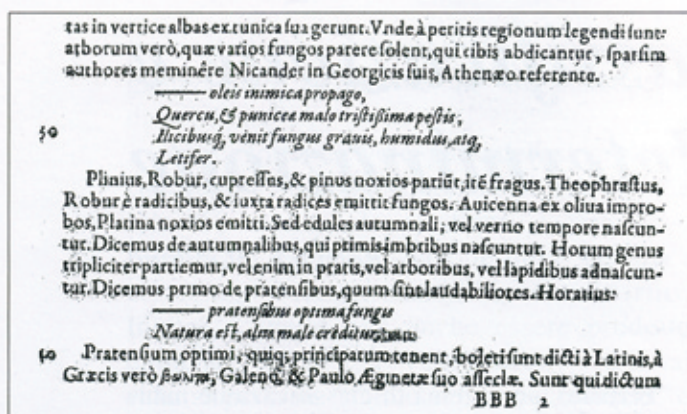 tas in vertice albas ex tunica ſua gerunt. Vnde à peritis regionum legendi ſunt:
arborum verò, quæ varios fungos parere ſolent, qui cibis abdicantur, ſparſim
authores meminêre Nicander in Georgicis ſuis, Athenæo referente.
—— oleis inimica propago,
Quercu, & punicea malo triſtißima peſtis,
50 Ilicibusq́, venit fungus grauis, humidus, atq,
Letifer.
Plinius, Robur, cupreſſus, & pinus noxios pariũt, itẽ fragus. Theophraſtus,
Robur è radicibus, & iuxta radices emittit fungos. Auicenna ex oliua impro-
bos, Platina noxios emitti. Sed edules autumnali, vel verno tempore naſcun-
tur. Dicemus de autumnalibus, qui primis imbribus naſcuntur. Horum genus
tripliciter partiemur, vel enim in pratis, vel arboribus, vel lapidibus adnaſcun-
tur. Dicemus primo de pratenſibus, quum ſint laudabiliores. Horatius:
—— pratenſibus optima fungis
Natura eſt, aliis male creditur.
60 Pratenſium optimi, quiq; principatum tenent, boleti ſunt dicti à Latinis, à
Græcis verò βωλίται, Galeno, & Paulo Æginetæ ſuo aſſeclæ. Sunt qui dictum
BBB 2